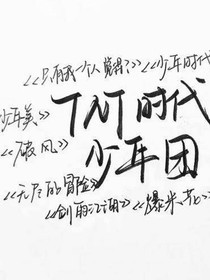 《只有我一个人觉得?》《少年时代
少年美》
TNT时代
《破风》
少年团
《无尽的冒险》
《剑雨江湖》《爆米花》